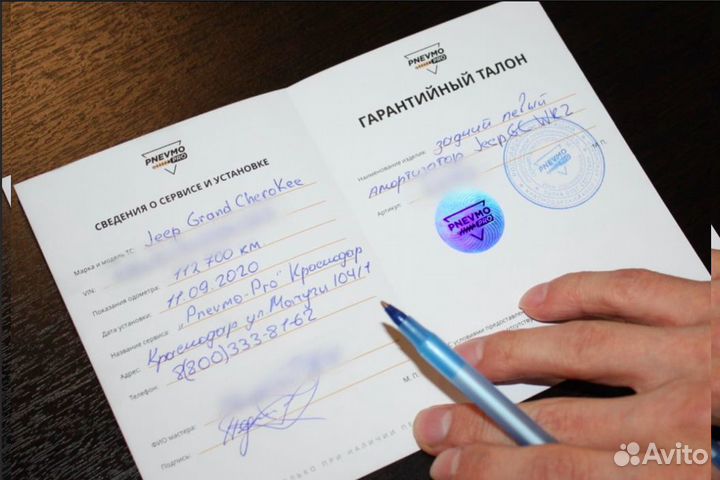 PNEVMO
PRO
СВЕДЕНИЯ О СЕРВИСЕ И УСТАНОВКЕ
Марка и модель ТС: Jeep Grand Cherokee
VIN:
Показания одометра: 112 700 км
Дата установки: 11.09.2020
Название сервиса: "Pnevmo-Pro" Краснодар
Адрес: Краснодар ул. Мачуги 104/1
Телефон: 8(800)333-81-62
ФИО мастера:
Подпись:
М. П.
ТОЛЬКО ПРИ НАЛИЧИИ
PNEVMO
PRO
ГАРАНТИЙНЫЙ ТАЛОН
Наименование изделия: задний левый
амортизатор Jeep GC WK2
Артикул:
М. П.
PNEVMO
PRO
PNEVMO
С условиями
Avito